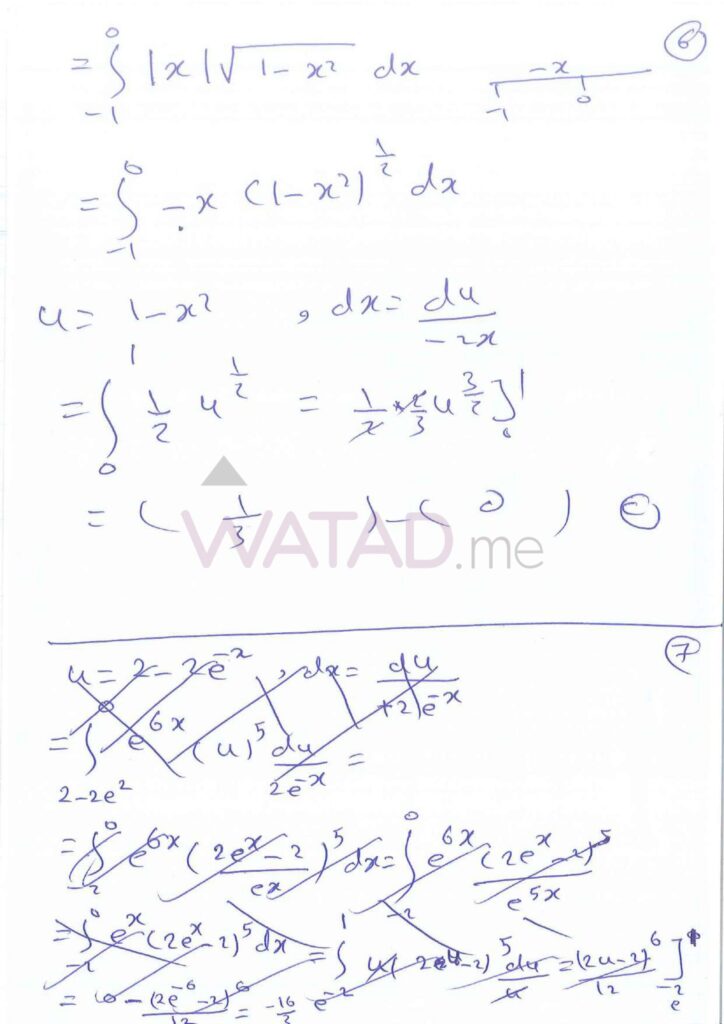 6
= ∫_{-1}^{0} |x| √(1-x²) dx    -x    -1    0
= ∫_{-1}^{0} -x (1-x²)^{1/2} dx
u = 1-x² , dx = du/(-2x)
= ∫_{0}^{1} 1/2 u^{1/2} = 1/2 * 2/3 u^{3/2} ]_{0}^{1}
= ( 1/3 ) - ( 0 )
WATAD.me
7
u = 2 - 2e^{-x} , dx = du/(+2e^{-x})
= ∫_{2-2e^2}^{0} e^{6x} (u)^5 du/(2e^{-x}) =
= ∫_{-2}^{0} e^{6x} ((2e^x - 2)/ex)^5 dx = ∫_{-2}^{0} e^{6x} (2e^x - 2)^5/e^{5x}
= ∫_{-2}^{0} e^x (2e^x - 2)^5 dx = ∫_{e^{-2}}^{1} u (2u-2)^5 du/u = (2u-2)^6/12 ]_{e^{-2}}^{1}
= 0 - (2e^{-6} - 2)^6/12 =